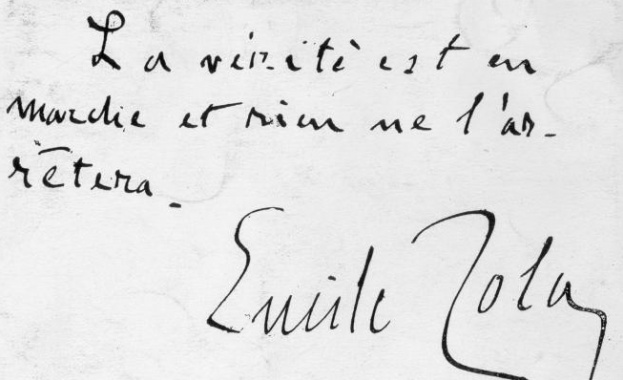 La vérité est en
marche et rien ne l'ar-
rêtera.
Emile Zola